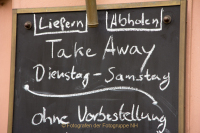 Liefern Abholen
Take Away
Dienstag - Samstag
ohne Vorbestellung
© Fotografen der Fotogruppe NH